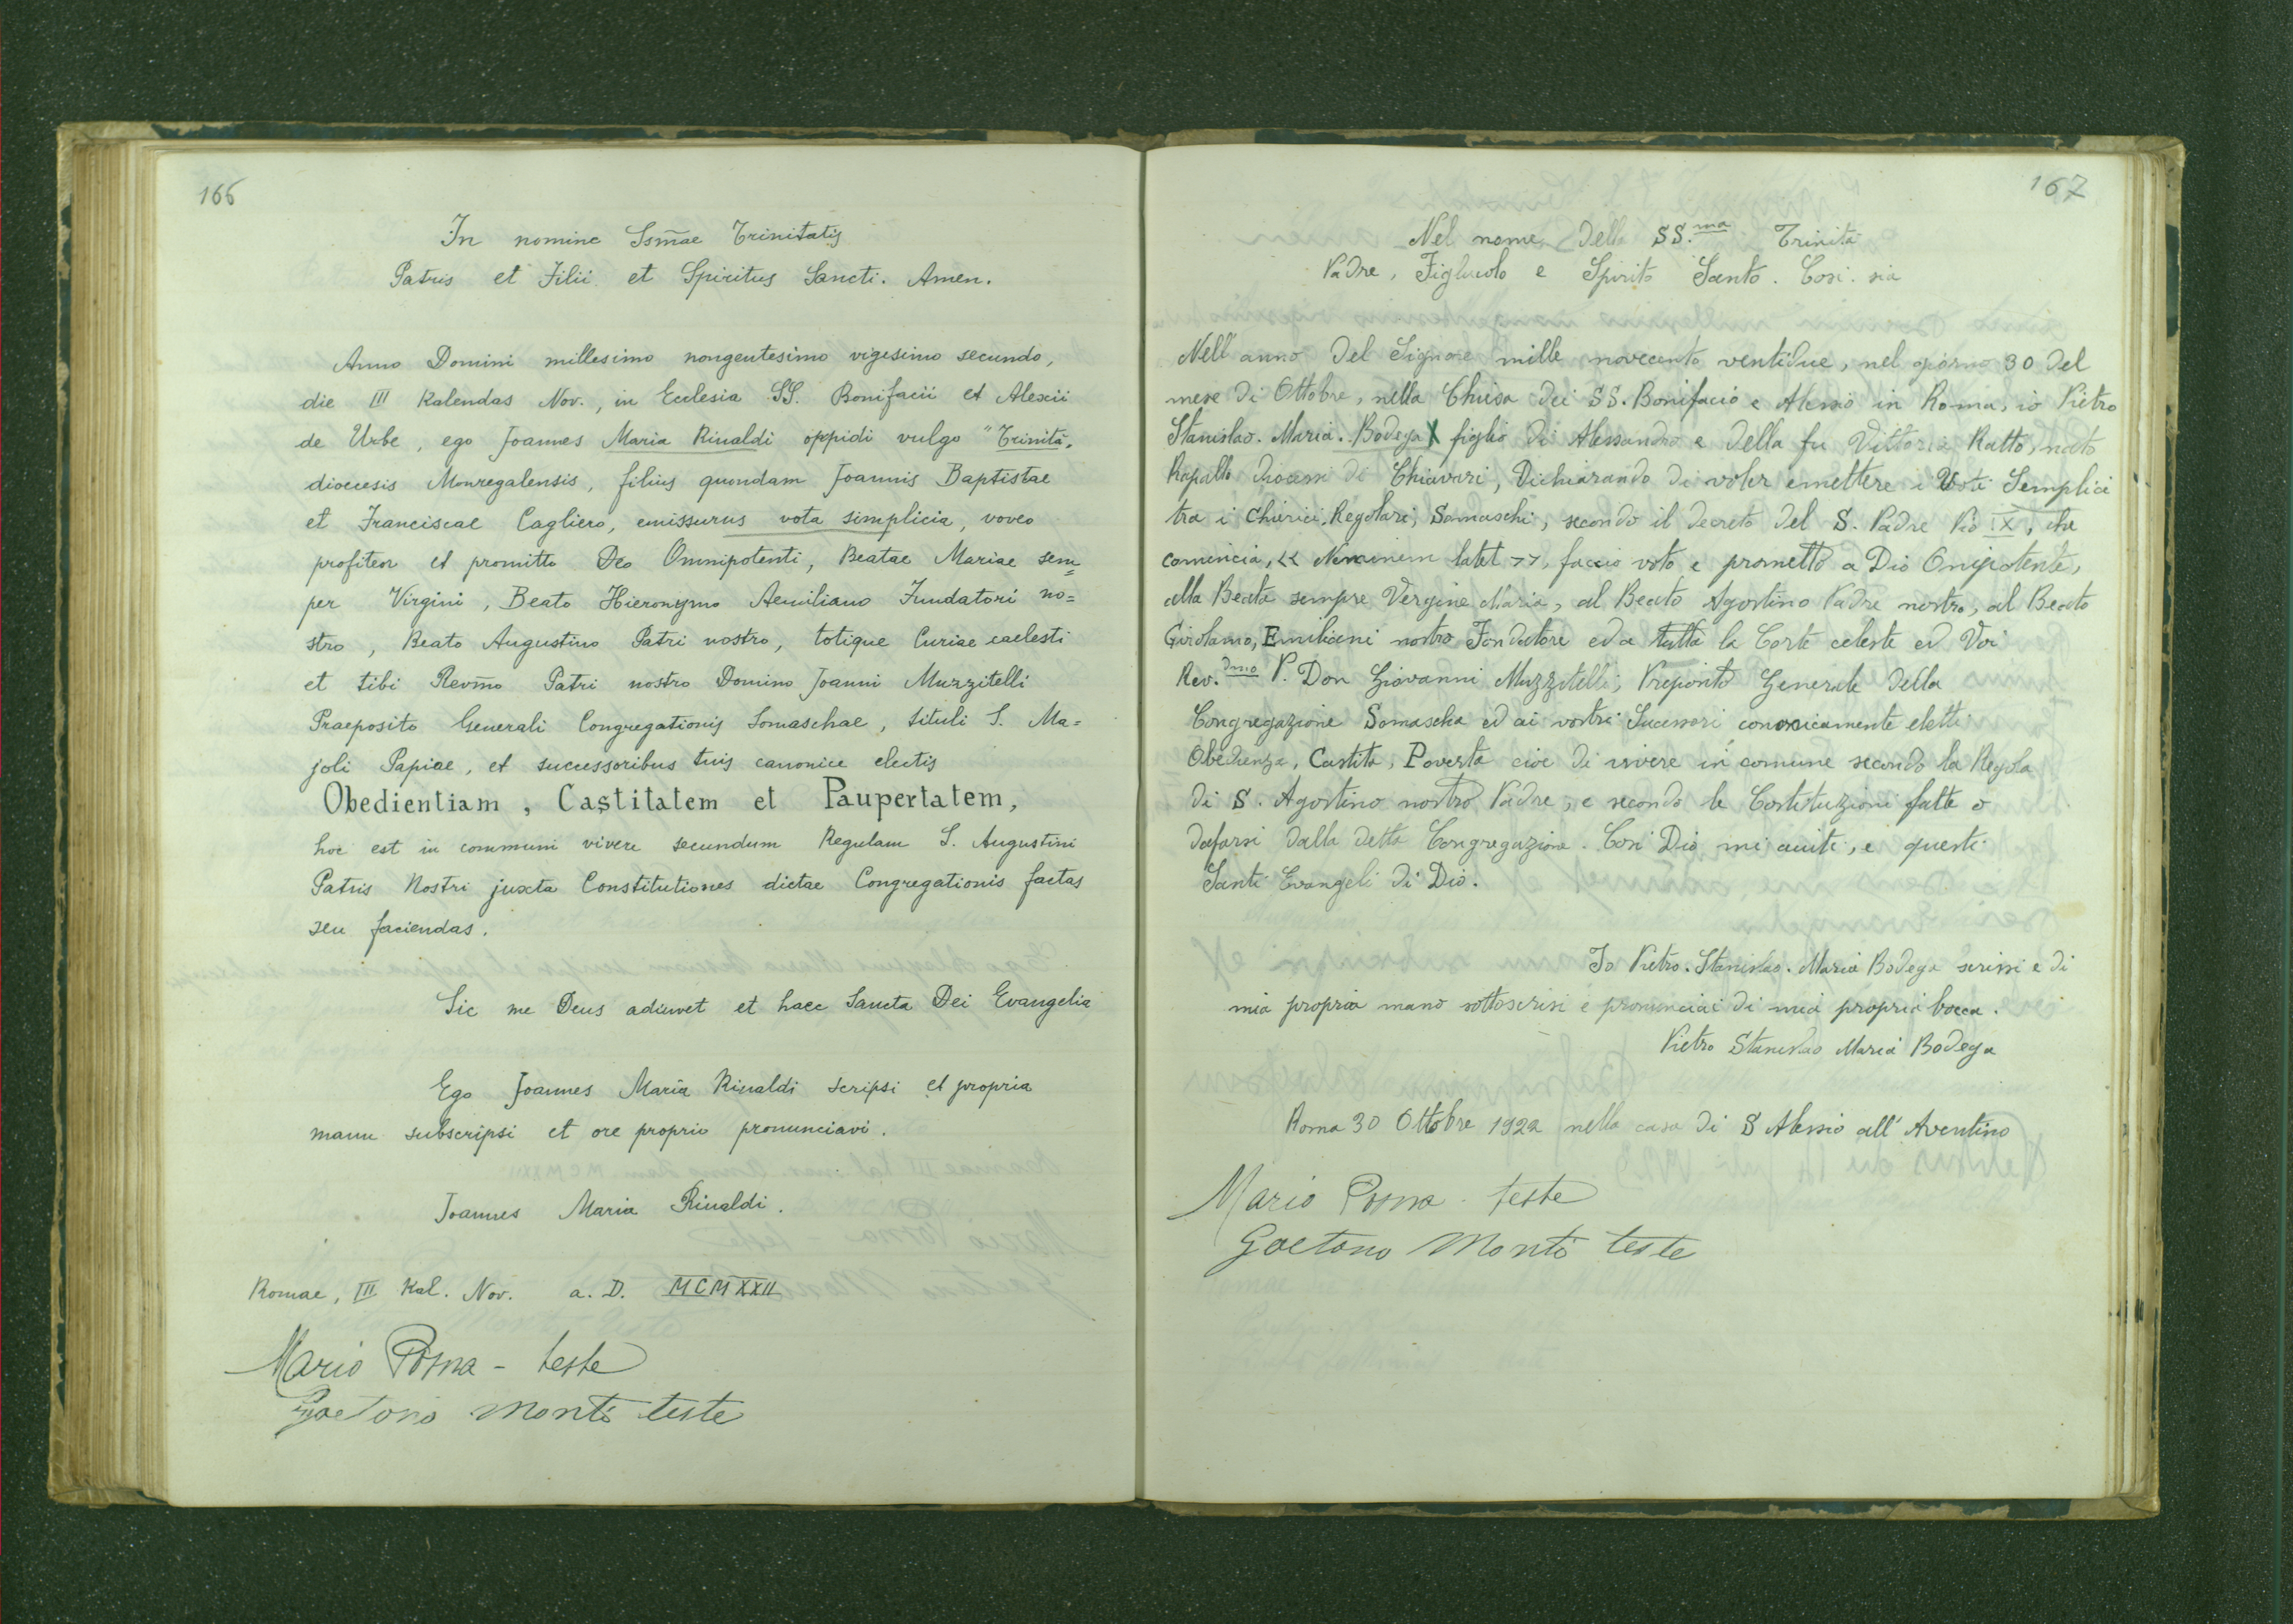 166
In nomine Ssm̄ae Trinitatis
Patris et Filii et Spiritus Sancti. Amen.
Anno Domini millesimo nongentesimo vigesimo secundo,
die III Kalendas Nov., in Ecclesia SS. Bonifacii et Alexii
de Urbe, ego Joannes Maria Rinaldi oppidi vulgo "Trinità,
diocesis Monregalensis, filius quondam Joannis Baptistae
et Franciscae Cagliero, emissurus vota simplicia, voveo
profiteor et promitto Deo Omnipotenti, Beatae Mariae sem=
per Virgini, Beato Hieronymo Aemiliano Fundatori no=
stro, Beato Augustino Patri nostro, totique Curiae caelesti
et tibi Revm̄o Patri nostro Domino Joanni Muzzitelli
Praeposito Generali Congregationis Somaschae, tituli S. Ma=
joli Papiae, et successoribus tuis canonice electis
Obedientiam, Castitatem et Paupertatem,
hoc est in communi vivere secundum Regulam S. Augustini
Patris Nostri juxta Constitutiones dictae Congregationis factas
seu faciendas.
Sic me Deus adiuvet et haec Sancta Dei Evangelia
Ego Joannes Maria Rinaldi scripsi et propria
manu subscripsi et ore proprio pronunciavi.
Joannes Maria Rinaldi.
Romae, III Kal. Nov. a. D. MCMXXII
Mario Posna - teste
Gaetano Monti teste
167
Nel nome della SS.ma Trinità
Padre, Figliuolo e Spirito Santo. Così sia
Nell'anno del Signore mille novecento ventidue, nel giorno 30 del
mese di Ottobre, nella Chiesa dei SS. Bonifacio e Alessio in Roma, io Pietro
Stanislao. Maria. Bodega X figlio di Alessandro e della fu Vittoria Ratto, nato
Rapallo diocesi di Chiavari, dichiarando di voler emettere i Voti Semplici
tra i Chierici Regolari, Somaschi, secondo il decreto del S. Padre Pio IX, che
comincia, << Neminem latet >>, faccio voto e prometto a Dio Onipotente,
alla Beata sempre Vergine Maria, al Beato Agostino Padre nostro, al Beato
Girolamo, Emiliani nostro Fondatore ed a tutta la Corte celeste ed Voi
Rev.dmo P. Don Giovanni Muzzitelli, Preposito Generale della
Congregazione Somascha ed ai vostri Sucessori canonicamente eletti
Obedienza, Castità, Povertà cioè di vivere in comune secondo la Regola
di S. Agostino nostro Padre, e secondo le Costituzioni fatte o
dafarsi dalla detta Congregazione. Così Dio mi aiuti, e questi
Santi Evangeli di Dio.
Io Pietro. Stanislao. Maria Bodega scrissi e di
mia propria mano sottoscrisi e pronunciai di mia propria bocca.
Pietro Stanislao Maria Bodega
Roma 30 Ottobre 1922 nella casa di S Alessio all'Aventino
Mario Posna - teste
Gaetano Monti teste